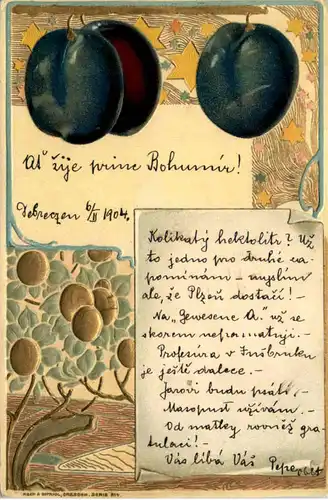 Ať žije princ Bohumír!
Debreczen 6/II 1904.
Kolikatý hektolitr? Už
to jedno pro druhé za-
pomínám – myslím
ale, že Plzeň dostačí! –
Na „Gewesene A." už se
skorem nepamatuji. –
Profesura v Insbruku
je ještě daleko. –
Jarovi budu psáti. –
Masopust užívám. –
Od matky rovněž gra-
tulaci! –
Vás líbá Váš Pepa
DRESDEN. SERIE